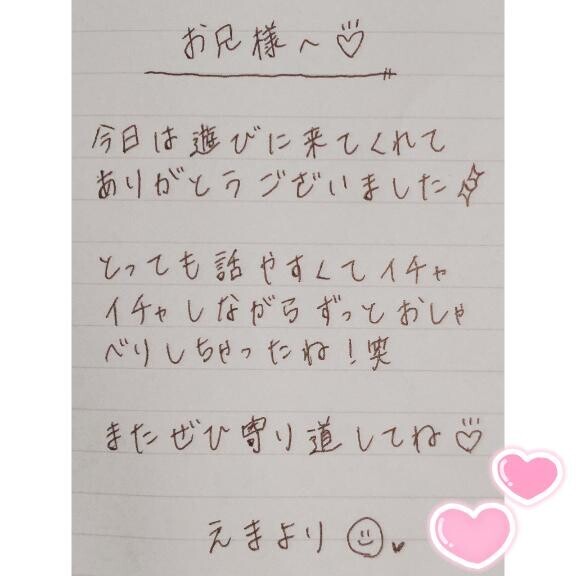 お兄様へ♡
今日は遊びに来てくれて
ありがとうございました
とっても話やすくてイチャ
イチャしながらずっとおしゃ
べりしちゃったね!笑
またぜひ寄り道してね♡
えまより